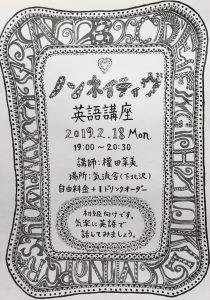 ノンネイティヴ
英語講座
2019.2.18 Mon.
19:00〜20:30
講師：權田菜美
場所：気流舎(下北沢)
自由料金＋1ドリンクオーダー
初級向けです。
気楽に英語で
話してみましょう。